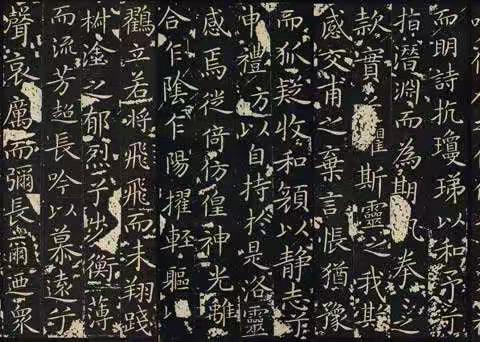 而明詩抗瓊珶以和予兮
指潛淵而為期拳之
款實懼斯靈之我欺
感交甫之棄言悵猶豫
而狐疑收和顏以静志兮
申禮防以自持於是洛靈
感焉徙倚彷徨神光離
合乍陰乍陽擢輕軀以
鸛立若將飛飛而未翔踐
椒塗之郁烈兮步衡薄
而流芳超長吟以慕遠兮
聲哀厲而彌長爾迺眾